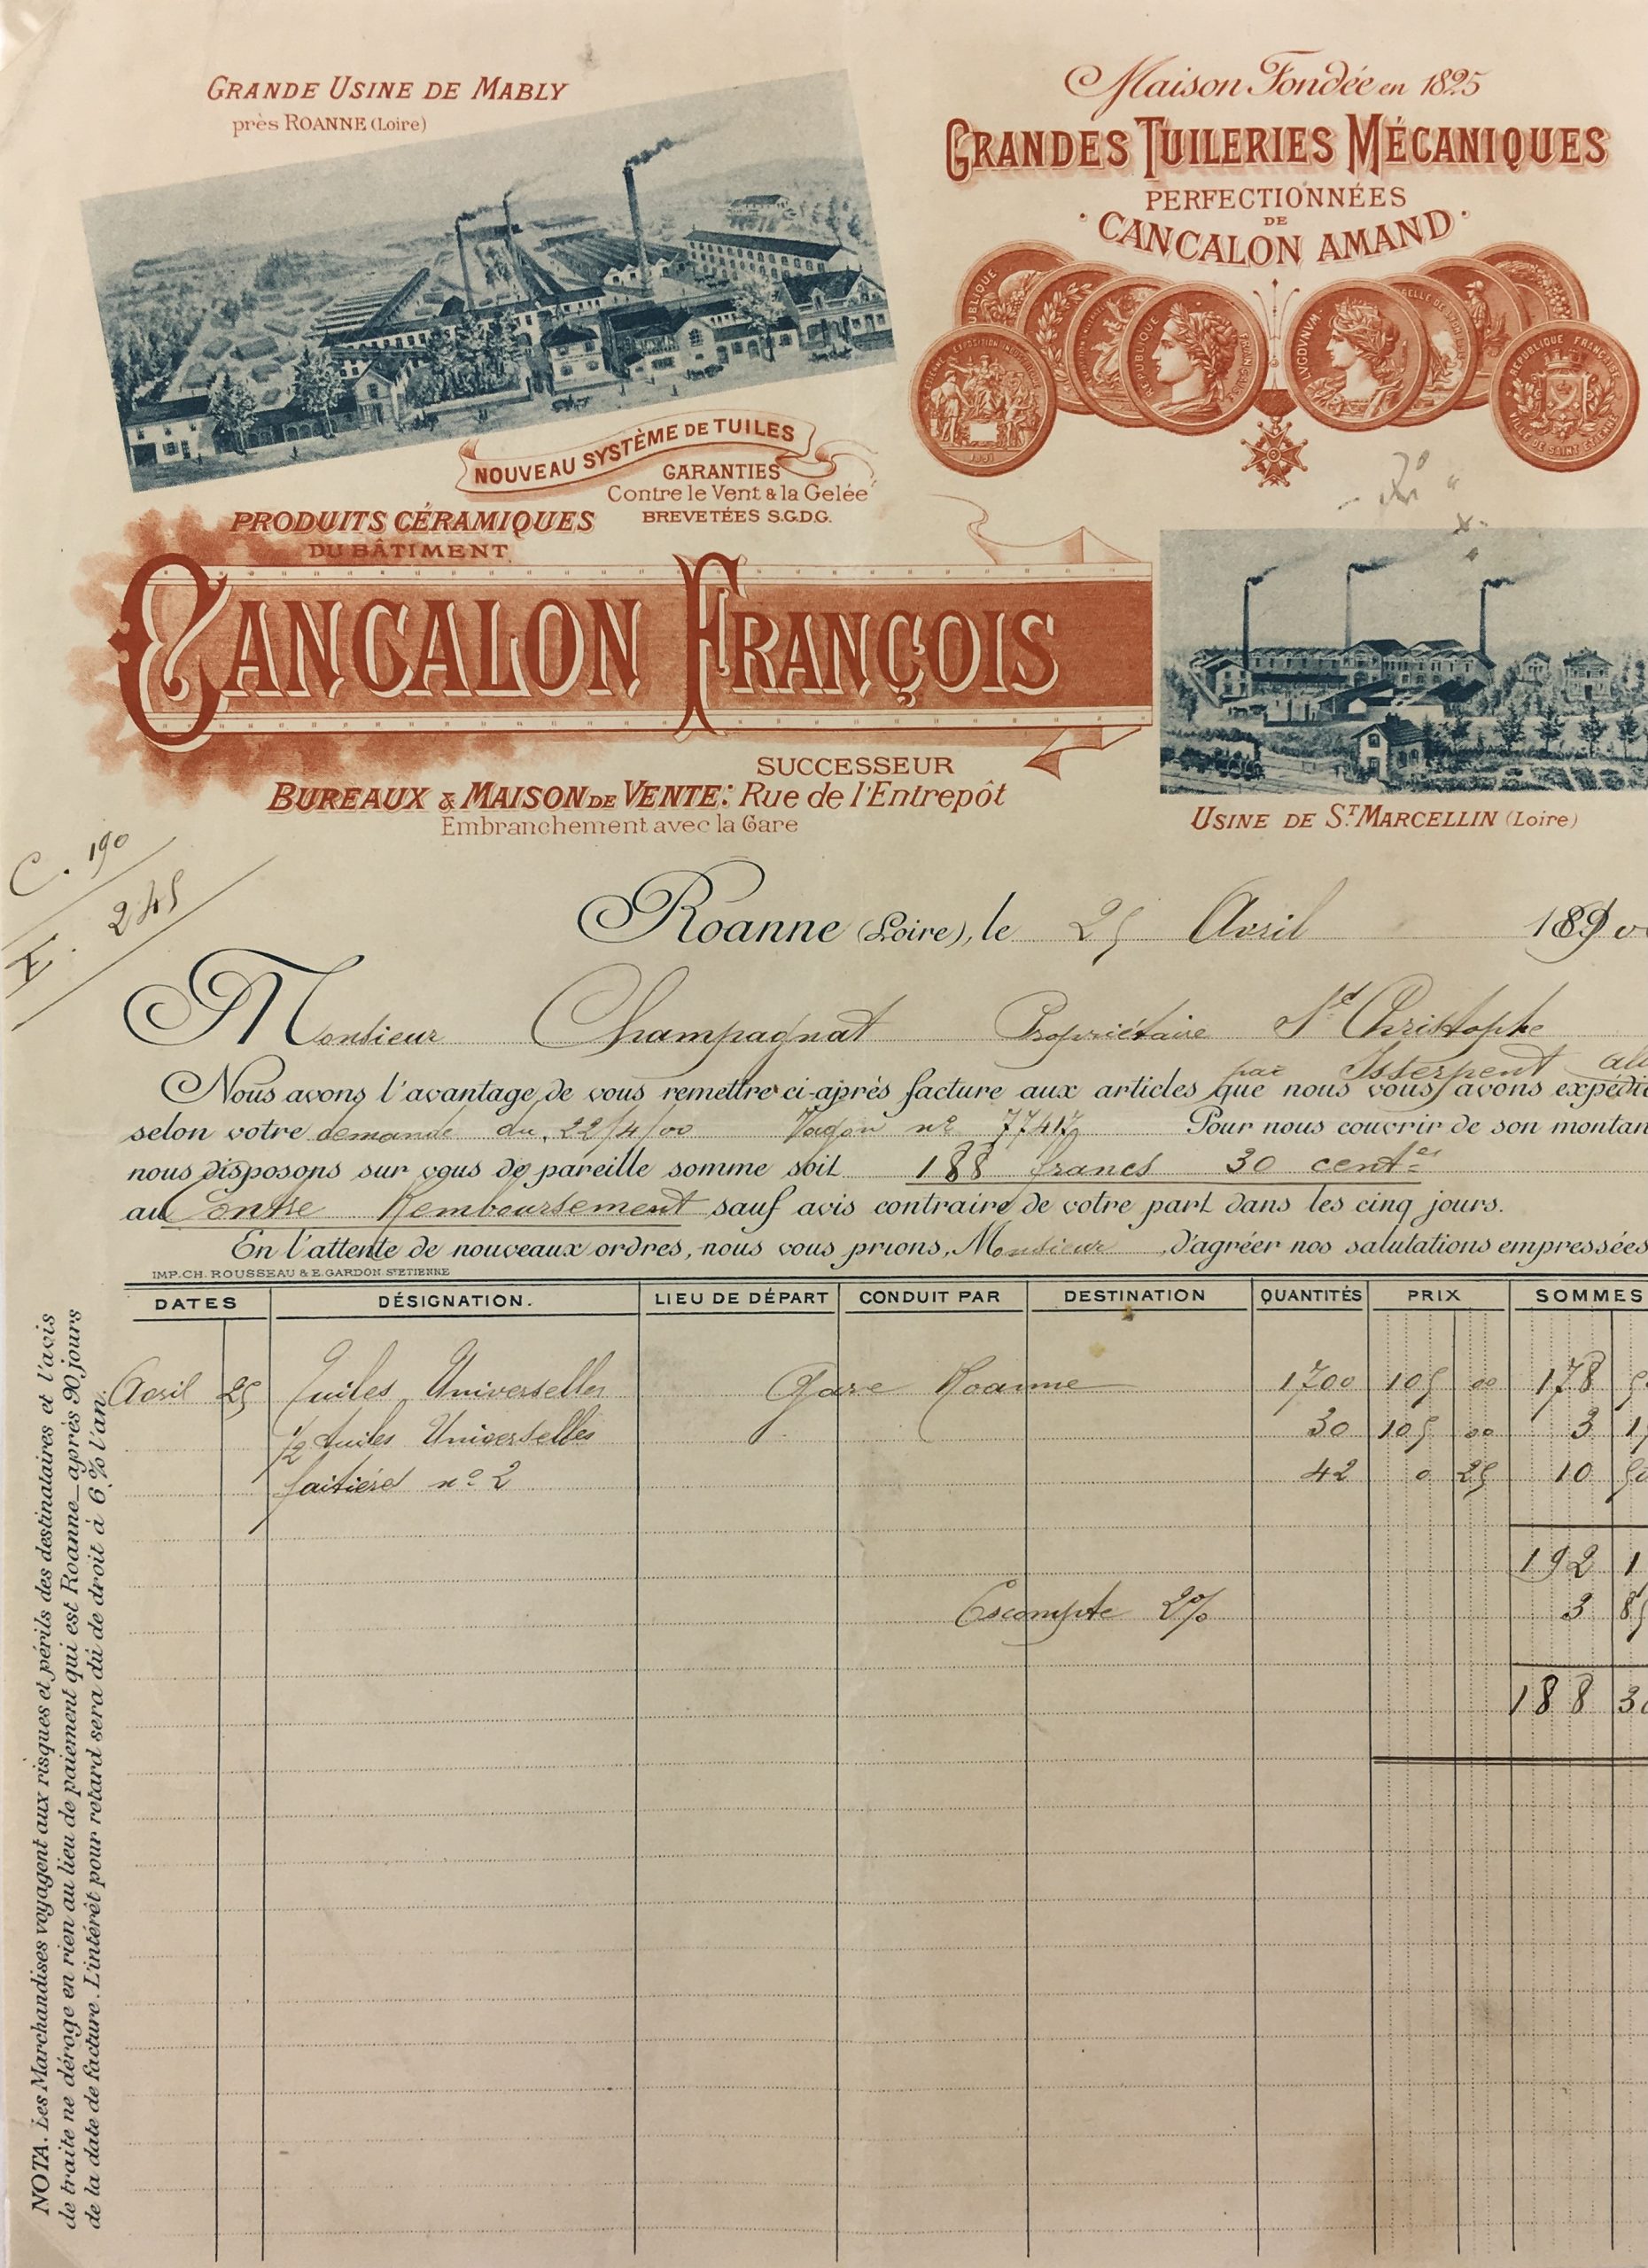 GRANDE USINE DE MABLY
près ROANNE (Loire)
Maison Fondée en 1825
GRANDES TUILERIES MÉCANIQUES
PERFECTIONNÉES
DE
CANCALON AMAND
RÉPUBLIQUE FRANÇAISE
LVGDVNVM
RÉPUBLIQUE FRANÇAISE
VILLE DE SAINT ETIENNE
NOUVEAU SYSTÈME DE TUILES
GARANTIES
Contre le Vent & la Gelée
BREVETÉES S.G.D.G.
PRODUITS CÉRAMIQUES
DU BÂTIMENT
CANCALON FRANÇOIS
SUCCESSEUR
BUREAUX & MAISON DE VENTE: Rue de l'Entrepôt
Embranchement avec la Gare
USINE DE ST. MARCELLIN (Loire)
C. 190
245
Roanne (Loire), le 25 Avril 1890
Monsieur Champagnat Propriétaire St Christophe
par Isserpent
Nous avons l'avantage de vous remettre ci-après facture aux articles que nous vous avons expédié
selon votre demande du 22/4/00 Vagon n° Pour nous couvrir de son montan
nous disposons sur vous de pareille somme soit 188 francs 30 centes
au Contre Remboursement sauf avis contraire de votre part dans les cinq jours.
En l'attente de nouveaux ordres, nous vous prions, Monsieur, d'agréer nos salutations empressées
IMP. CH. ROUSSEAU & E. GARDON ST ETIENNE
DATES DÉSIGNATION. LIEU DE DÉPART CONDUIT PAR DESTINATION QUANTITÉS PRIX SOMMES
Avril 25 Tuiles Universelles Gare Roanne 1700 105 00 178 50
1/2 tuiles Universelles 30 105 00 3 15
faitières n° 2 42 0 25 10 50
192 1
Escompte 2% 3 85
188 30
NOTA. Les Marchandises voyagent aux risques et périls des destinataires et l'avis
de traite ne déroge en rien au lieu de paiement qui est Roanne_après 90 jours
de la date de facture. L'intérêt pour retard sera dû de droit à 6 % l'an.